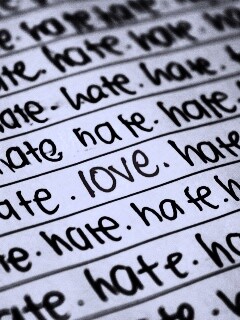 hate. hate.
hate. hate. hate
ate. hate. hate.
ate. hate. hate.
hate hate. hate.
ate. love. hate
te. hate. hate. h
ate. hate. ha
hate